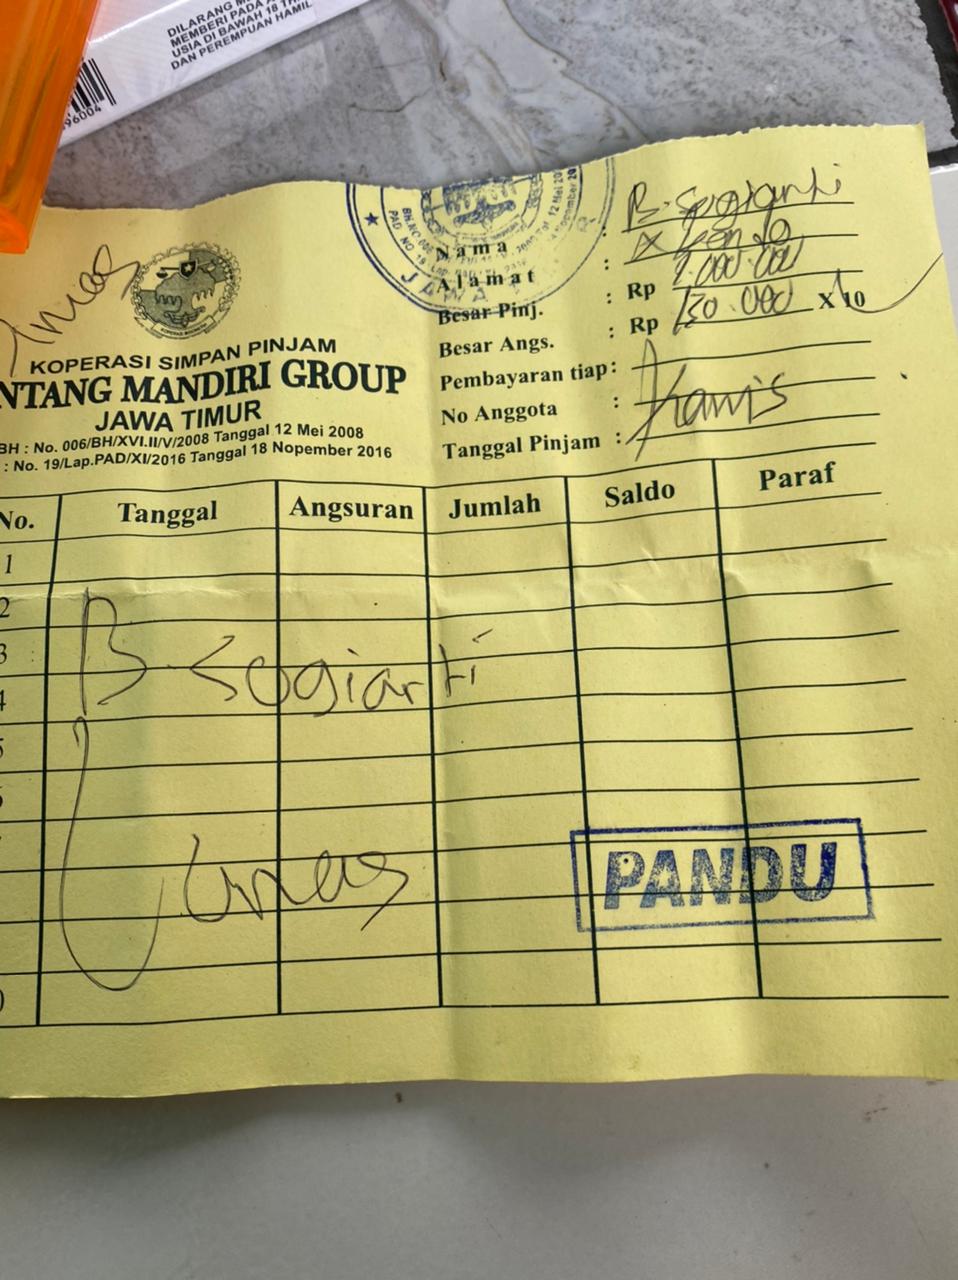 DILARANG M
MEMBERI PADA A
USIA DI BAWAH 18 TH
DAN PEREMPUAN HAMIL
96004
KOPERASI SIMPAN PINJAM
NTANG MANDIRI GROUP
JAWA TIMUR
BH : No. 006/BH/XVI.II/V/2008 Tanggal 12 Mei 2008
: No. 19/Lap.PAD/XI/2016 Tanggal 18 Nopember 2016
Nama : B. Sugianti
Alamat :
Besar Pinj. : Rp 1.000.000
Besar Angs. : Rp 130.000 X 10
Pembayaran tiap :
No Anggota : Kamis
Tanggal Pinjam :
No. Tanggal Angsuran Jumlah Saldo Paraf
1
2
3
4
B. Sugiarti
Lunas
PANDU